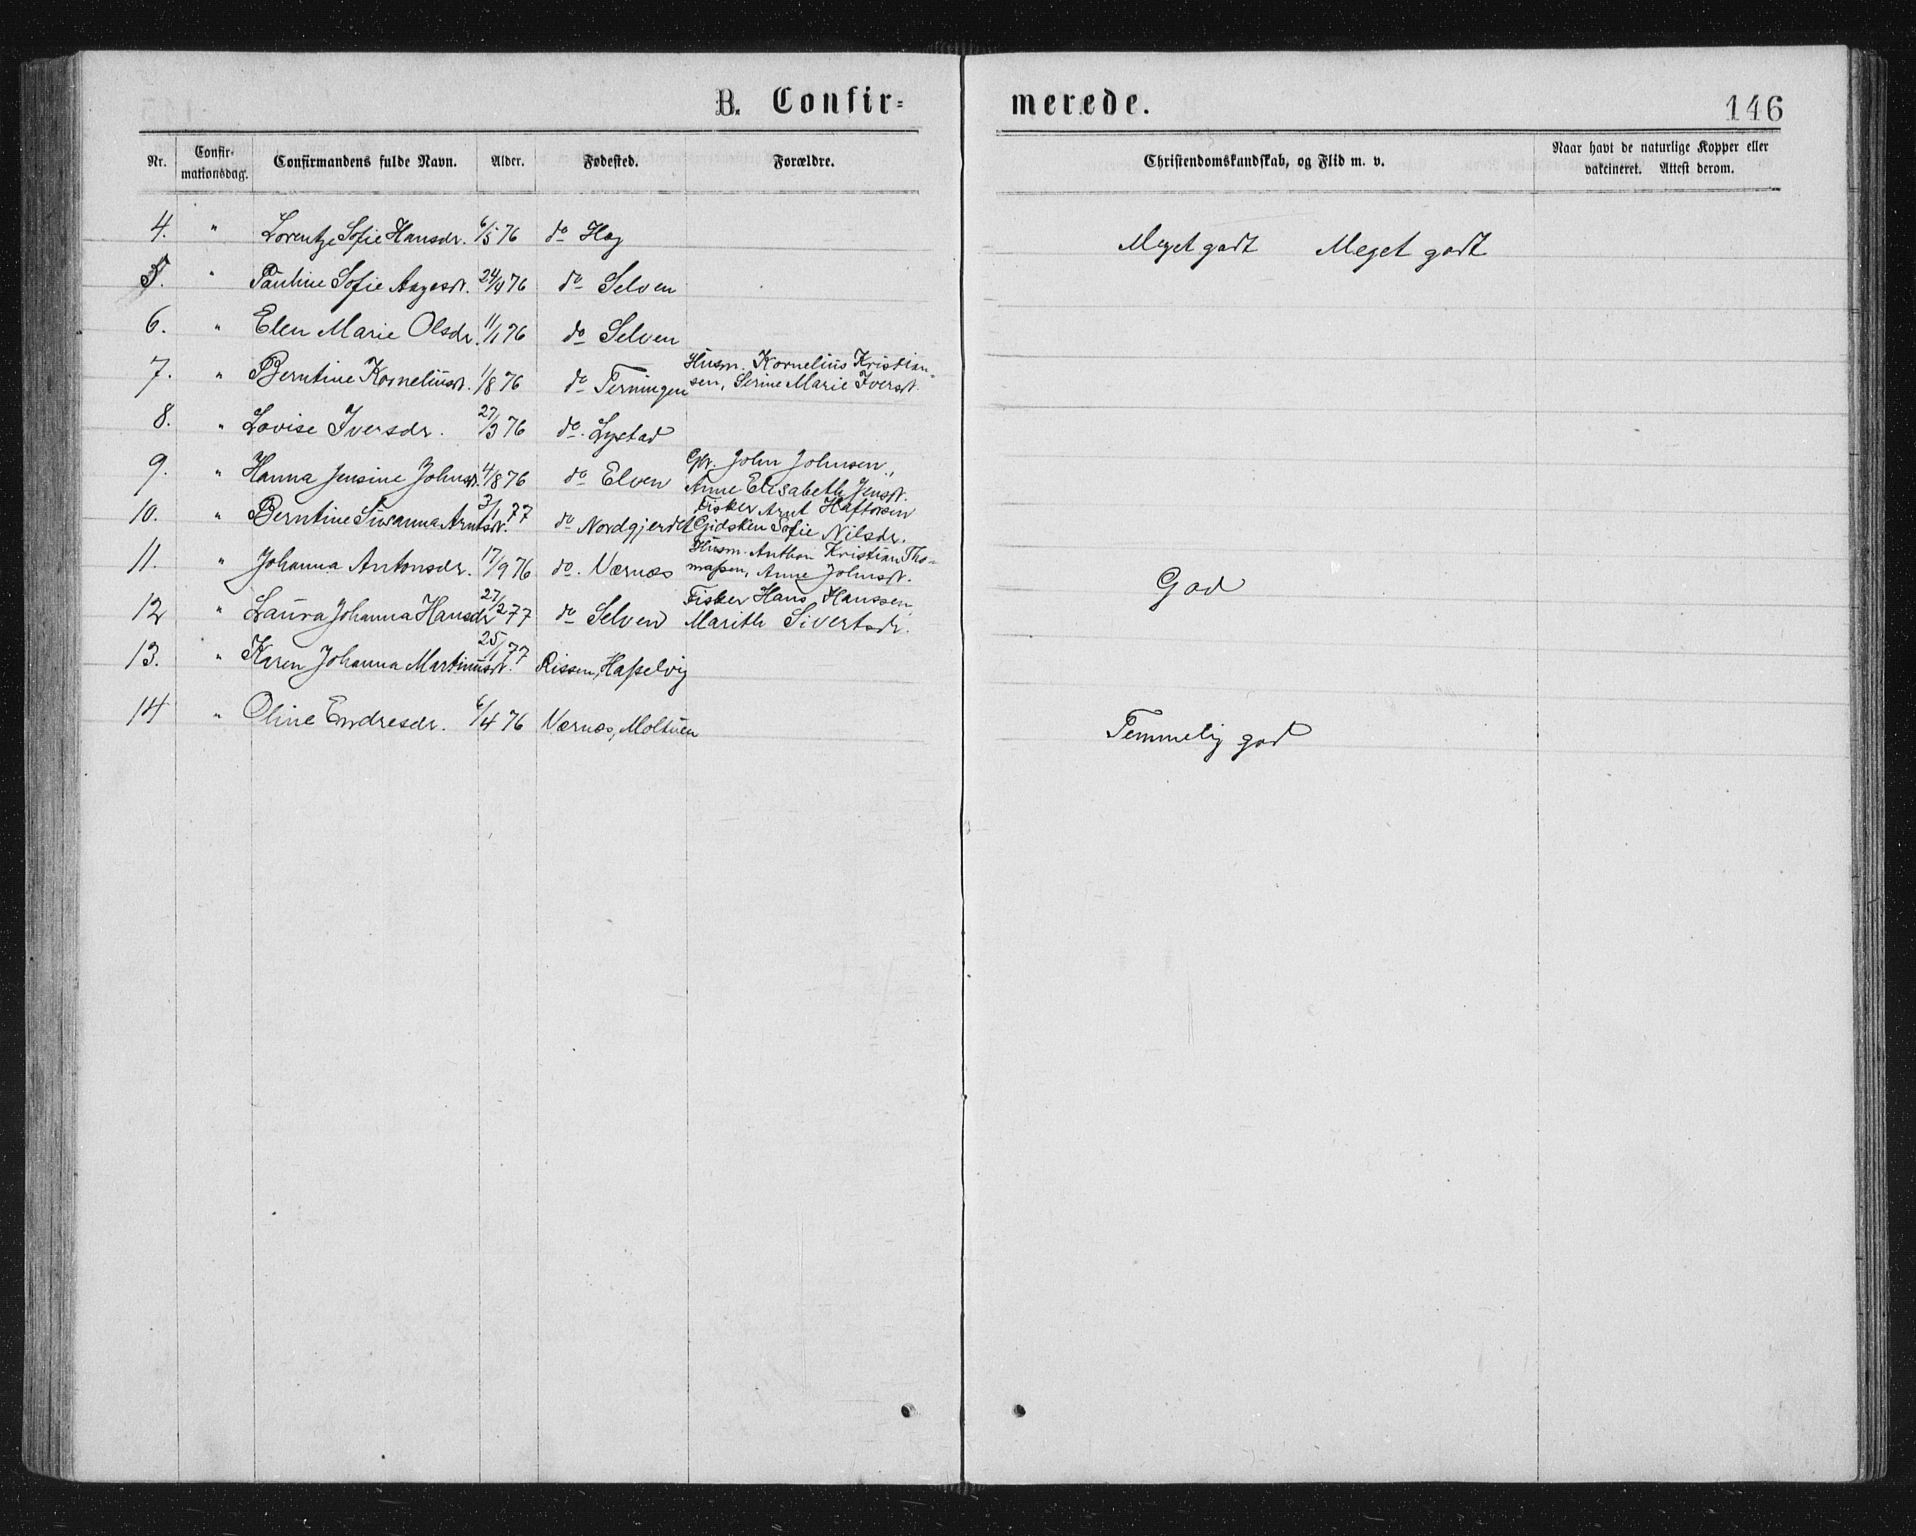 B. Confir=
merede.
146
Nr.
Confir-
mationsdag.
Confirmandens fulde Navn.
Alder.
Fødested.
Forældre.
Christendomskundskab, og Flid m. v.
Naar havt de naturlige Kopper eller
vakcineret. Attest derom.
4. " Lorentze Sofie Hansdr. 6/5 76 do Hoy Meget godt Meget godt
5. " Pauline Sofie Aagesdt. 24/4 76 do Selven
6. " Elen Marie Olsdr. 11/1 76 do Selven
7. " Berntine Korneliusdt. 1/8 76 do Terningen Husm. Kornelius Kristian-
sen, Serine Marie Iversdt.
8. " Lovise Iversdr. 27/3 76 do. Lystad
9. " Hanna Jensine Johnsdt. 4/8 76 do Elven Gbr. John Johnsen,
Anne Elisabeth Jensdt.
10. " Berntine Susanna Arntsdt. 3/1 77 do Nordgjerdet Fisker Arnt Haftorsen
Gjidsken Sofie Nilsdr.
11. " Johanna Antonsdr. 17/9 76 do. Værnæs Husm. Anthon Kristian Tho-
massen, Anne Johnsdt.
12 " Laura Johanna Hansdr 27/2 77 do Selven Fisker Hans Hanssen,
Marith Sivertsdr.
God
13. " Karen Johanna Martinusdt. 25/1 77 Rissen, Hasselvig
14 " Oline Endresdr. 6/4 76 Værnæs, Moltuen Temmelig god